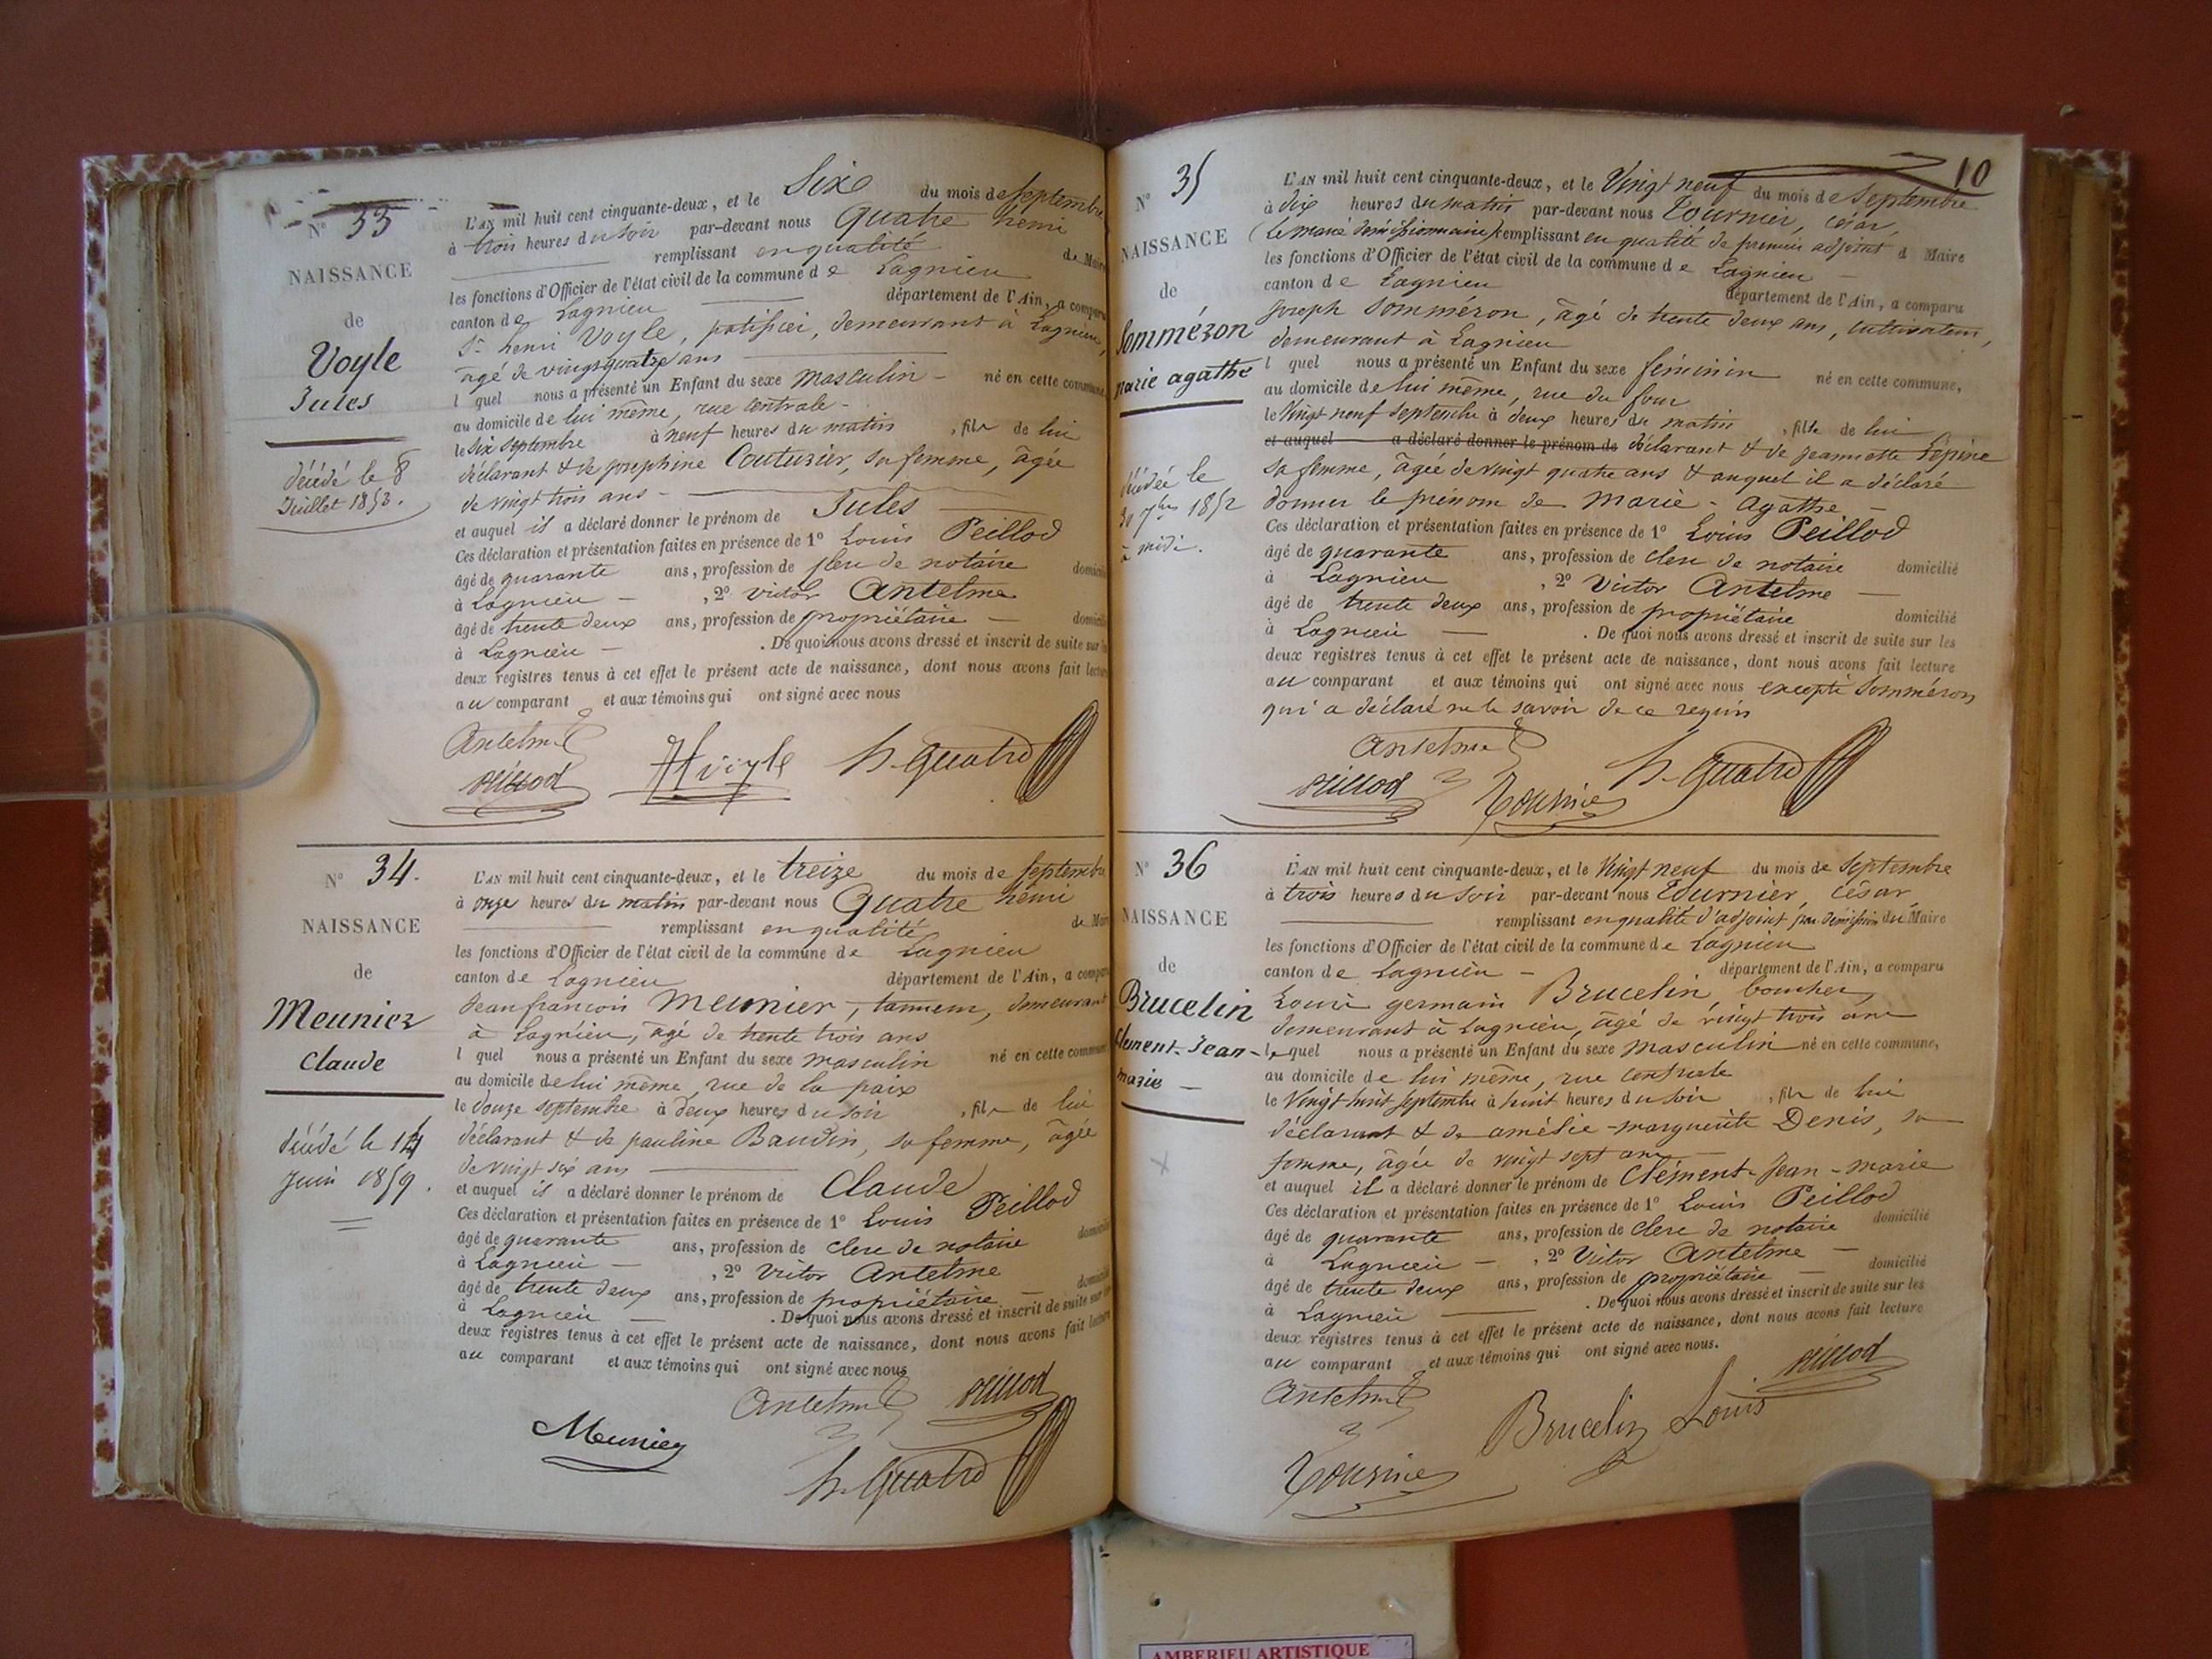 N° 33
NAISSANCE
de
Voyle
Jules
décédé le 8
Juillet 1853.
L'AN mil huit cent cinquante-deux, et le Six du mois de Septembre
à trois heures du soir par-devant nous Quatre henri
remplissant en qualité de Maire
les fonctions d'Officier de l'état civil de la commune de Lagnieu
canton de Lagnieu département de l'Ain, a comparu
Sr henri Voyle, patissier, demeurant à Lagnieu,
âgé de vingt quatre ans
l quel nous a présenté un Enfant du sexe masculin né en cette commune,
au domicile de lui même, rue centrale
le six septembre à neuf heures du matin, fils de lui
déclarant & de josephine Couturier, sa femme, âgée
de vingt trois ans
et auquel il a déclaré donner le prénom de Jules
Ces déclaration et présentation faites en présence de 1° Louis Peillod
âgé de quarante ans, profession de clerc de notaire domicilié
à Lagnieu, 2° victor Antelme
âgé de trente deux ans, profession de propriétaire domicilié
à Lagnieu. De quoi nous avons dressé et inscrit de suite sur les
deux registres tenus à cet effet le présent acte de naissance, dont nous avons fait lecture
au comparant et aux témoins qui ont signé avec nous
Antelme
Peillod HVoyle h. Quatre
N° 34.
NAISSANCE
de
Meunier
Claude
décédé le 14
Juin 1859.
L'AN mil huit cent cinquante-deux, et le treize du mois de Septembre
à onze heures du matin par-devant nous Quatre henri
remplissant en qualité de Maire
les fonctions d'Officier de l'état civil de la commune de Lagnieu
canton de Lagnieu département de l'Ain, a comparu
Jean francois Meunier, tanneur, demeurant
à Lagnieu, âgé de trente trois ans
l quel nous a présenté un Enfant du sexe masculin né en cette commune
au domicile de lui même, rue de la paix
le douze septembre à deux heures du soir, fils de lui
déclarant & de pauline Baudin, sa femme, âgée
de vingt six ans
et auquel il a déclaré donner le prénom de Claude
Ces déclaration et présentation faites en présence de 1° Louis Peillod
âgé de quarante ans, profession de clerc de notaire domicilié
à Lagnieu, 2° Victor Antelme
âgé de trente deux ans, profession de propriétaire domicilié
à Lagnieu. De quoi nous avons dressé et inscrit de suite sur les
deux registres tenus à cet effet le présent acte de naissance, dont nous avons fait lecture
au comparant et aux témoins qui ont signé avec nous
Antelme Peillod
Meunier
h. Quatre
10
N° 35
NAISSANCE
de
Somméron
marie agathe
décédée le
30 7bre 1852
à midi.
L'AN mil huit cent cinquante-deux, et le Vingt neuf du mois de Septembre
à dix heures du matin par-devant nous Tournier, César,
(le maire démissionnaire) remplissant en qualité de premier adjoint d Maire
les fonctions d'Officier de l'état civil de la commune de Lagnieu
canton de Lagnieu département de l'Ain, a comparu
joseph Somméron, âgé de trente deux ans, cultivateur,
demeurant à Lagnieu
l quel nous a présenté un Enfant du sexe féminin né en cette commune,
au domicile de lui même, rue du four
le Vingt neuf septembre à deux heures du matin, fille de lui
et auquel a déclaré donner le prénom de déclarant & de jeannette Lépine
sa femme, âgée de vingt quatre ans & auquel il a déclaré
donner le prénom de Marie-Agathe
Ces déclaration et présentation faites en présence de 1° Louis Peillod
âgé de quarante ans, profession de clerc de notaire domicilié
à Lagnieu, 2° Victor Antelme
âgé de trente deux ans, profession de propriétaire domicilié
à Lagnieu. De quoi nous avons dressé et inscrit de suite sur les
deux registres tenus à cet effet le présent acte de naissance, dont nous avons fait lecture
au comparant et aux témoins qui ont signé avec nous excepté Somméron,
qui a déclaré ne le savoir de ce requis
Antelme
Peillod Tournier h. Quatre
N° 36
NAISSANCE
de
Brucelin
Clement-Jean-
marie
L'AN mil huit cent cinquante-deux, et le Vingt neuf du mois de Septembre
à trois heures du soir par-devant nous Tournier, César,
remplissant en qualité d'adjoint par démission du Maire
les fonctions d'Officier de l'état civil de la commune de Lagnieu
canton de Lagnieu département de l'Ain, a comparu
Louis germain Brucelin, boucher,
demeurant à Lagnieu, âgé de vingt trois ans
lequel nous a présenté un Enfant du sexe masculin né en cette commune,
au domicile de lui même, rue centrale
le Vingt huit septembre à huit heures du soir, fils de lui
déclarant & de amélie-marguerite Denis, sa
femme, âgée de vingt sept ans
et auquel il a déclaré donner le prénom de Clément-Jean-marie
Ces déclaration et présentation faites en présence de 1° Louis Peillod
âgé de quarante ans, profession de clerc de notaire domicilié
à Lagnieu, 2° Victor Antelme
âgé de trente deux ans, profession de propriétaire domicilié
à Lagnieu. De quoi nous avons dressé et inscrit de suite sur les
deux registres tenus à cet effet le présent acte de naissance, dont nous avons fait lecture
au comparant et aux témoins qui ont signé avec nous.
Antelme Peillod
Brucelin Louis
Tournier
AMBERIEU ARTISTIQUE